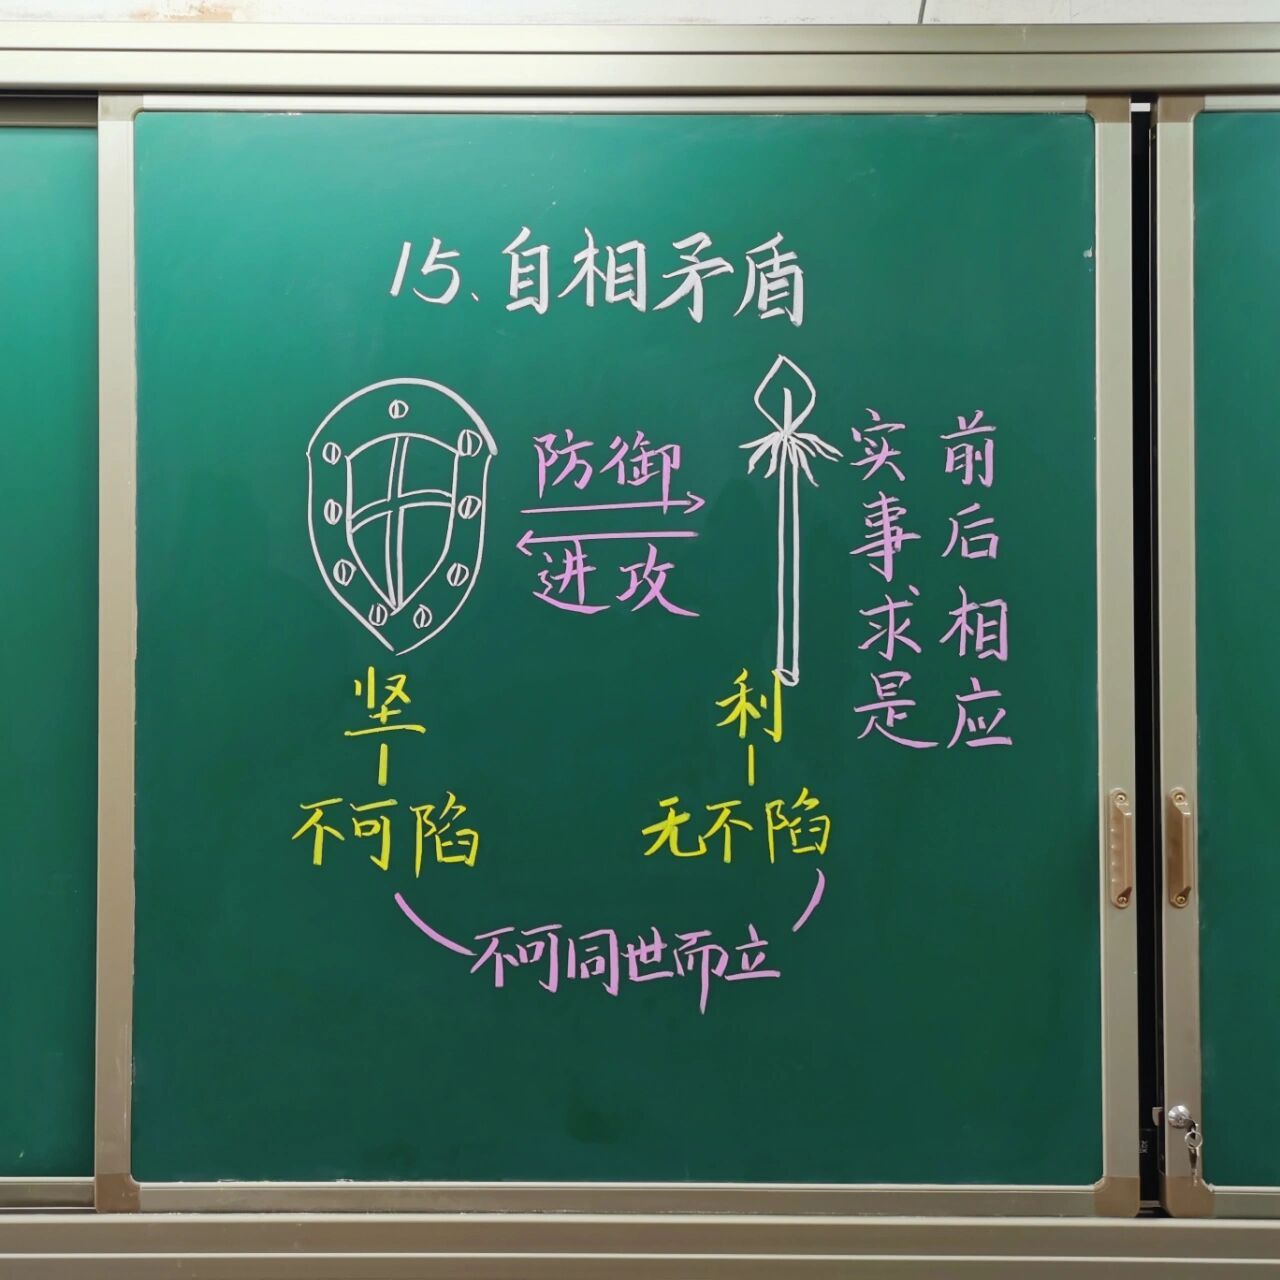 15、自相矛盾
防御
进攻
实事求是
前后相应
坚
利
不可陷
无不陷
不可同世而立